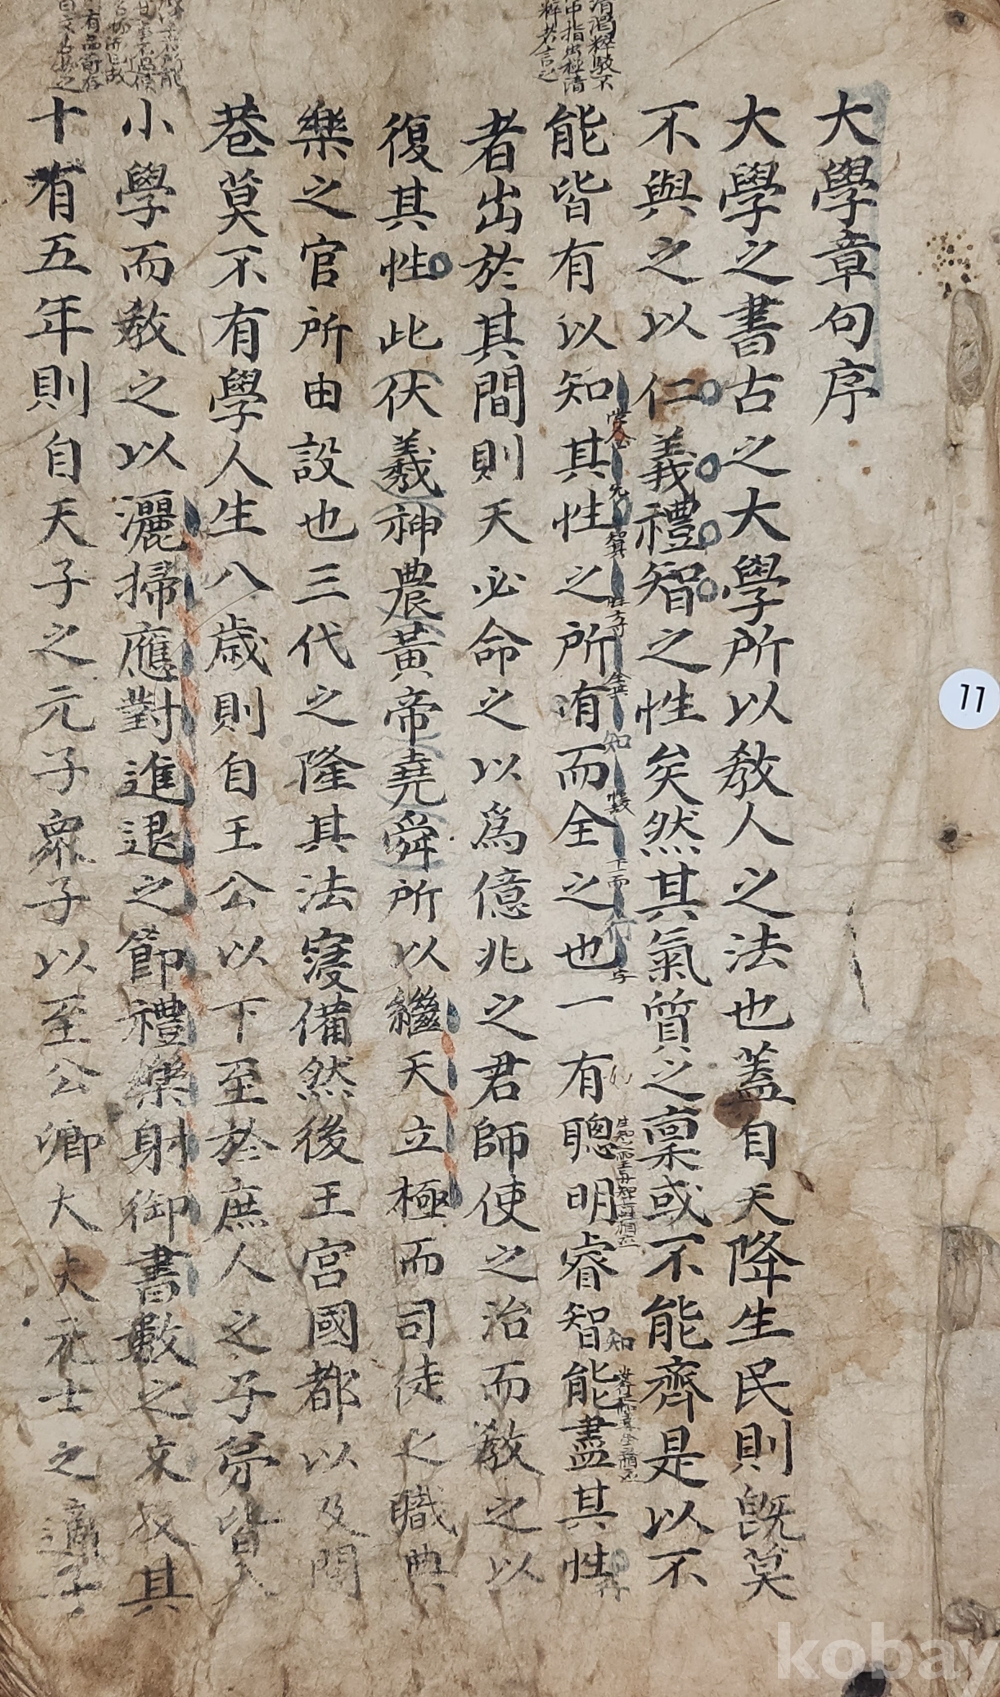 大學章句序
大學之書古之大學所以敎人之法也蓋自天降生民則旣莫
不與之以仁義禮智之性矣然其氣質之稟或不能齊是以不
能皆有以知其性之所有而全之也一有聰明睿智能盡其性
者出於其間則天必命之以爲億兆之君師使之治而敎之以
復其性此伏羲神農黃帝堯舜所以繼天立極而司徒之職典
樂之官所由設也三代之隆其法寖備然後王宮國都以及閭
巷莫不有學人生八歲則自王公以下至於庶人之子弟皆入
小學而敎之以灑掃應對進退之節禮樂射御書數之文及其
十有五年則自天子之元子衆子以至公卿大夫元士之適子
11
kobay